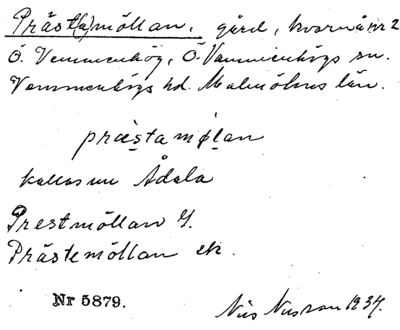 Präst(a)möllan, gård, kvarn å nr 2
Ö. Vemmenhög, Ö. Vemmenhögs sn.
Vemmenhögs hd. Malmöhus län.
præstamølan
kallas nu Ådala
Prestmöllan G.
Prästemöllan ek.
Nr 5879.
Nils Nilsson 1934.